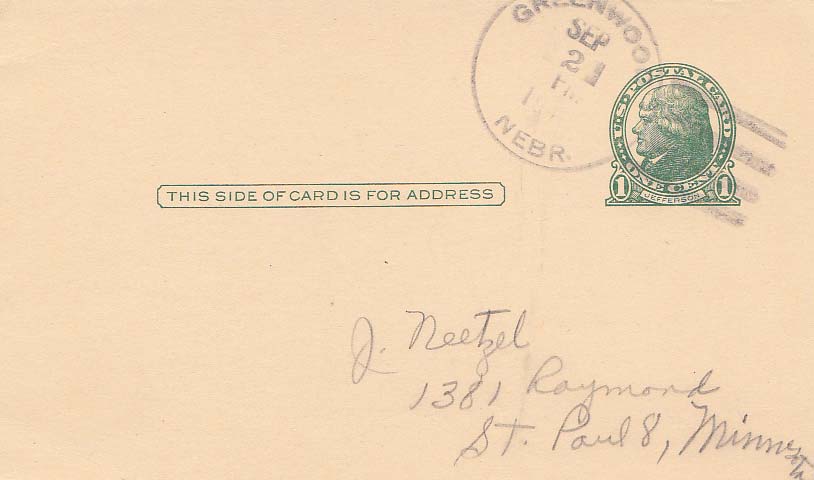 GREENWOOD
SEP
21
NEBR.
U.S. POSTAL CARD
ONE CENT
1 JEFFERSON 1
THIS SIDE OF CARD IS FOR ADDRESS
J. Neetzel
1381 Raymond
St. Paul 8, Minnesota